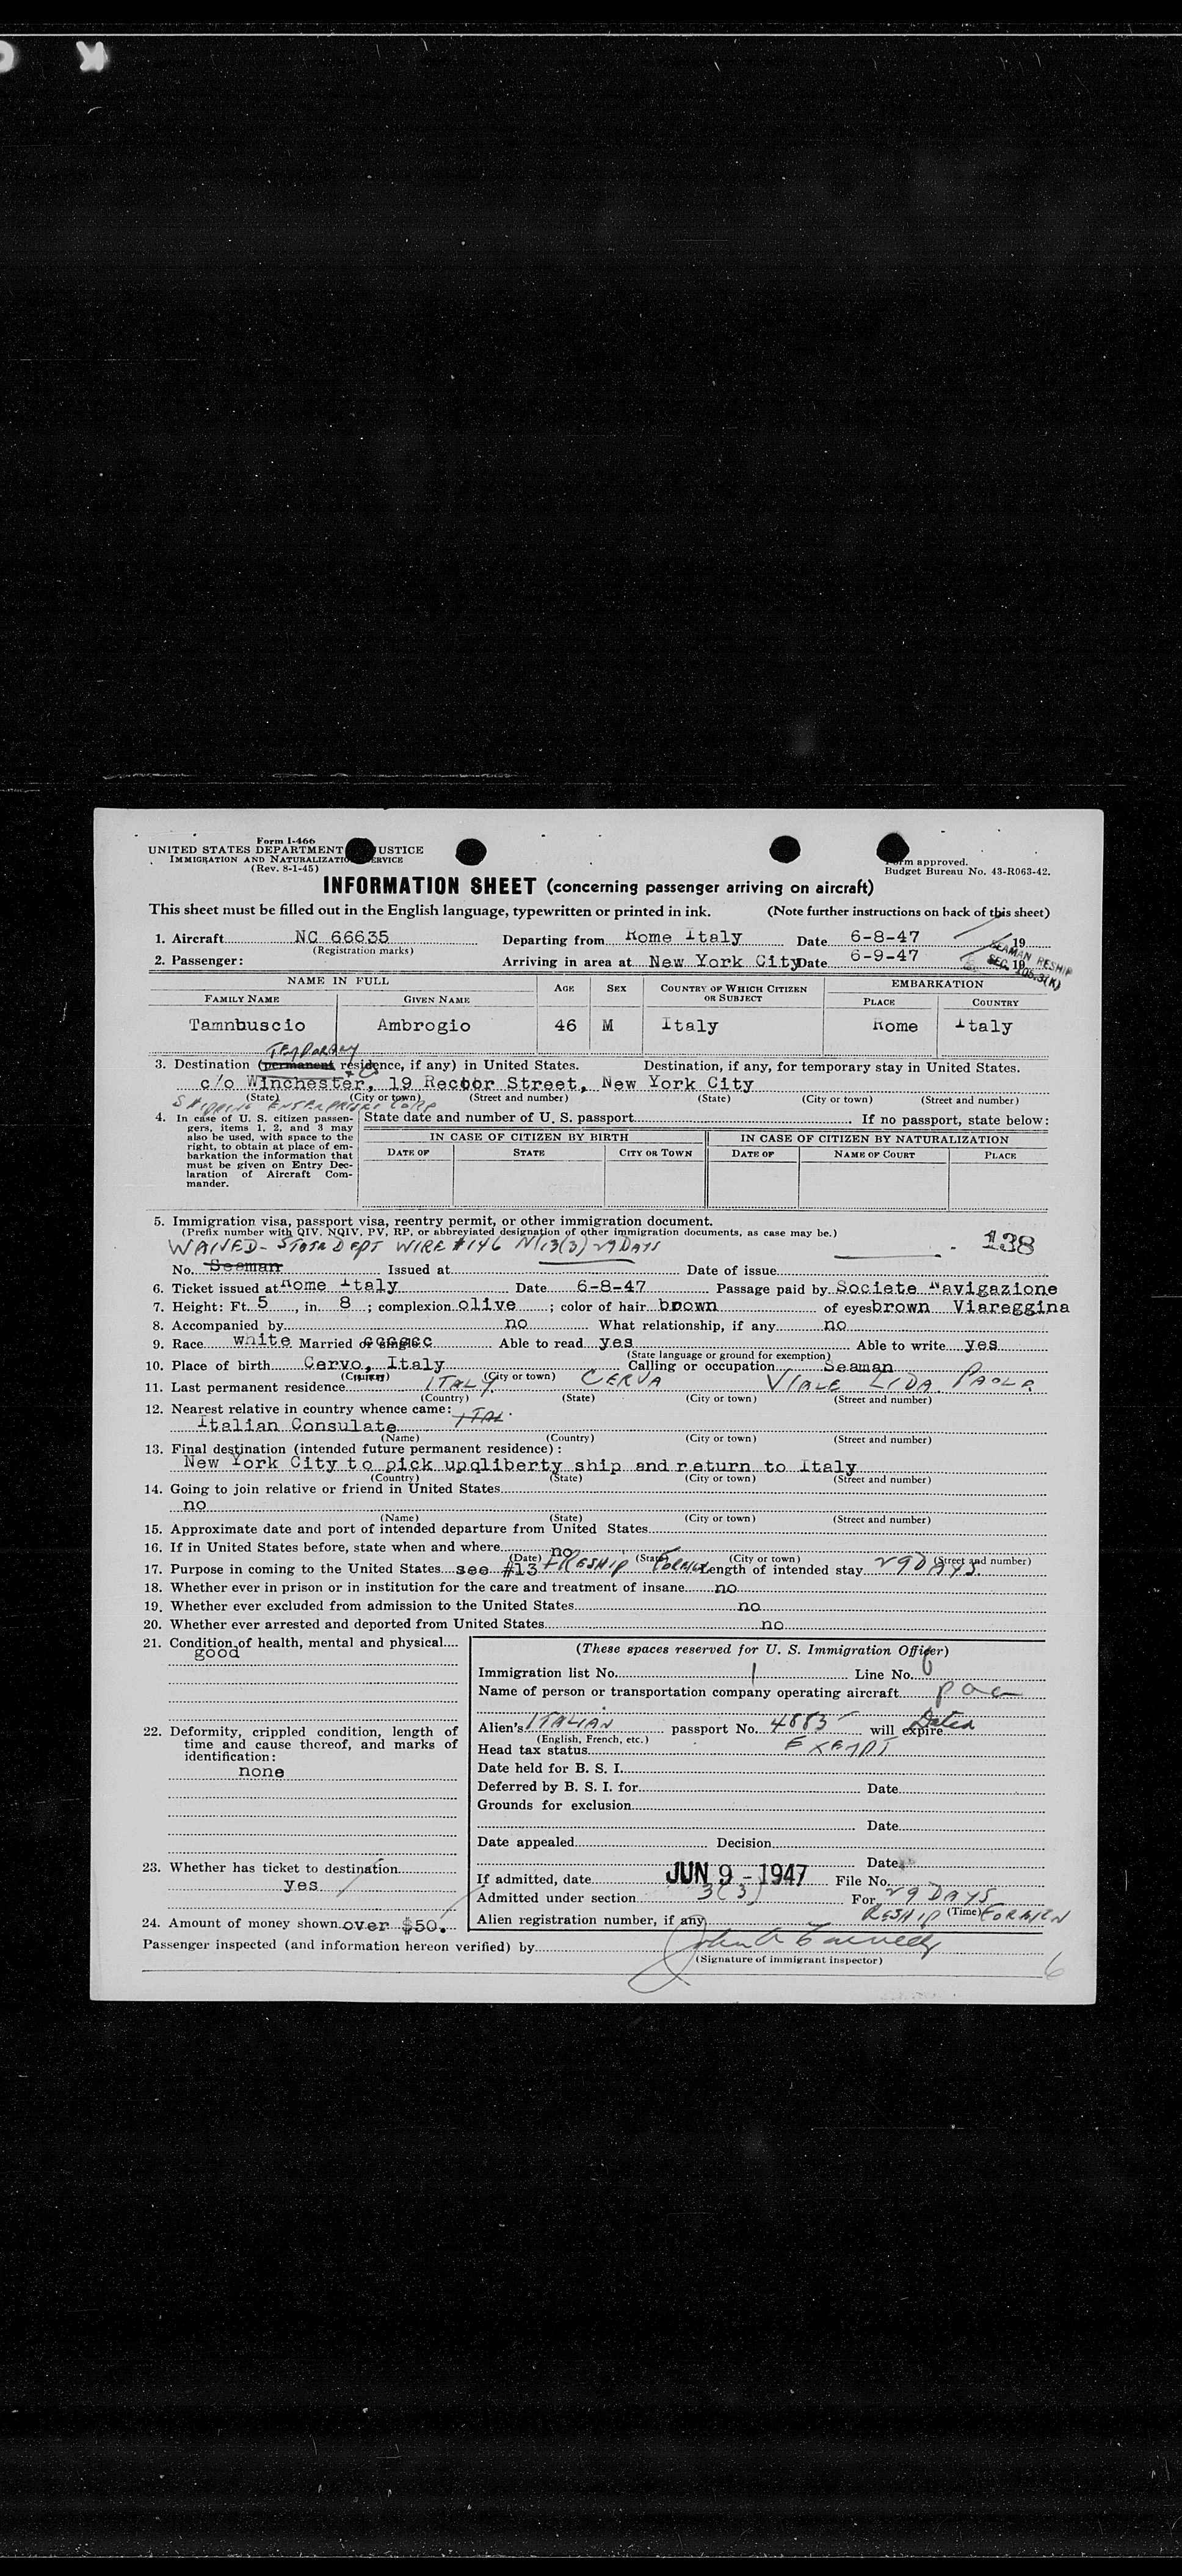 Form I-466
UNITED STATES DEPARTMENT JUSTICE
IMMIGRATION AND NATURALIZATION SERVICE
(Rev. 8-1-45)
Form approved.
Budget Bureau No. 43-R063-42.
INFORMATION SHEET (concerning passenger arriving on aircraft)
This sheet must be filled out in the English language, typewritten or printed in ink. (Note further instructions on back of this sheet)
1. Aircraft NC 66635 Departing from Rome Italy Date 6-8-47 19
(Registration marks)
SEAMAN RESHIP
2. Passenger: Arriving in area at New York City Date 6-9-47 19
SEC. 105.3(K)
NAME IN FULL AGE SEX COUNTRY OF WHICH CITIZEN OR SUBJECT EMBARKATION
FAMILY NAME GIVEN NAME PLACE COUNTRY
Tamnbuscio Ambrogio 46 M Italy Rome Italy
TEMPORARY
3. Destination (permanent residence, if any) in United States. Destination, if any, for temporary stay in United States.
c/o Winchester, 19 Rector Street, New York City
(State) (City or town) (Street and number) (State) (City or town) (Street and number)
SHIPPING ENTERPRISES CORP
4. In case of U. S. citizen passengers, items 1, 2, and 3 may also be used, with space to the right, to obtain at place of embarkation the information that must be given on Entry Declaration of Aircraft Commander.
State date and number of U. S. passport If no passport, state below:
IN CASE OF CITIZEN BY BIRTH IN CASE OF CITIZEN BY NATURALIZATION
DATE OF STATE CITY OR TOWN DATE OF NAME OF COURT PLACE
5. Immigration visa, passport visa, reentry permit, or other immigration document.
(Prefix number with QIV, NQIV, PV, RP, or abbreviated designation of other immigration documents, as case may be.)
WAIVED - STATE DEPT WIRE #146 N(13(3) 29 DAYS 138
No. Seaman Issued at Date of issue
6. Ticket issued at Rome Italy Date 6-8-47 Passage paid by Societe Navigazione
7. Height: Ft. 5, in. 8; complexion olive; color of hair brown of eyes brown Viareggina
8. Accompanied by no What relationship, if any no
9. Race white Married or single Able to read yes Able to write yes
(State language or ground for exemption)
10. Place of birth Cervo, Italy Calling or occupation Seaman
(Country) (City or town)
11. Last permanent residence ITALY CERVA VIALE LIDA PAOLA
(Country) (State) (City or town) (Street and number)
12. Nearest relative in country whence came: ITAL.
Italian Consulate
(Name) (Country) (City or town) (Street and number)
13. Final destination (intended future permanent residence):
New York City to pick upqliberty ship and return to Italy
(Country) (State) (City or town) (Street and number)
14. Going to join relative or friend in United States
no
(Name) (State) (City or town) (Street and number)
15. Approximate date and port of intended departure from United States
16. If in United States before, state when and where no
(Date) (State) (City or town) (Street and number)
17. Purpose in coming to the United States see #13 + RESHIP FOREIGN Length of intended stay 29 DAYS
18. Whether ever in prison or in institution for the care and treatment of insane no
19. Whether ever excluded from admission to the United States no
20. Whether ever arrested and deported from United States no
21. Condition of health, mental and physical
good
(These spaces reserved for U. S. Immigration Officer)
Immigration list No. 1 Line No. 6
Name of person or transportation company operating aircraft paa
22. Deformity, crippled condition, length of time and cause thereof, and marks of identification:
none
Alien's ITALIAN passport No. 4883 will expire Dated
(English, French, etc.)
Head tax status EXEMPT
Date held for B. S. I.
Deferred by B. S. I. for Date
Grounds for exclusion
Date
Date appealed Decision
Date
23. Whether has ticket to destination
yes
If admitted, date JUN 9 - 1947 File No.
Admitted under section 3(3) For 29 DAYS
(Time)
RESHIP FOREIGN
24. Amount of money shown over $50.
Alien registration number, if any
Passenger inspected (and information hereon verified) by
(Signature of immigrant inspector)
6